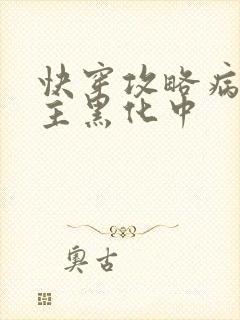 快穿攻略病
主黑化中
奥古